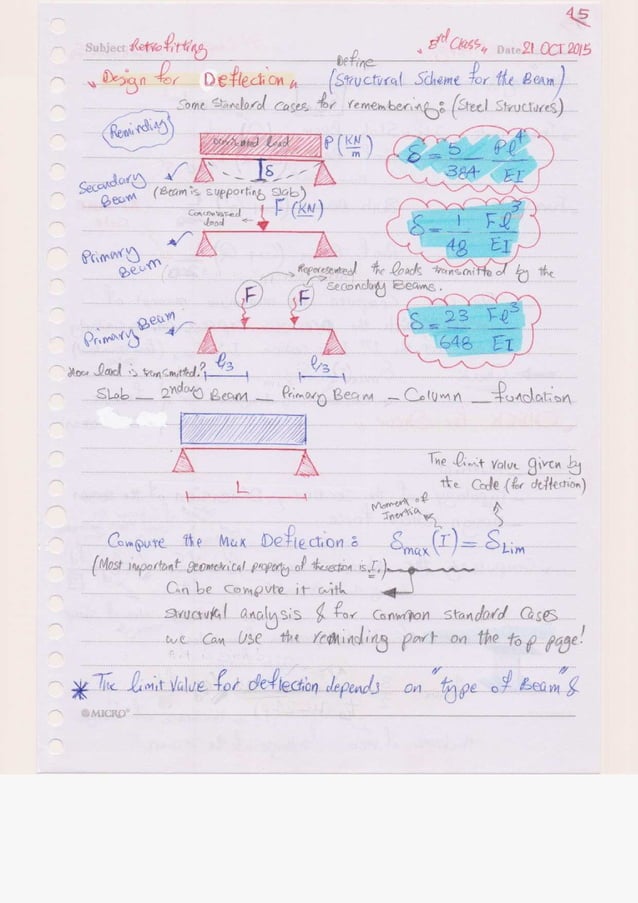 45
Subject Retrofitting „3rd Class„ Date 21 OCT 2015
„Design for Deflection„ Define (Structural Scheme for the Beam)
Some Standard cases for remembering: (Steel Structures)
Reminding
P (KN/m)
δ = 5/384 Pl⁴/EI
δ
Secondary Beam
(Beam is supporting Slab)
Concentrated load
F (KN)
δ = 1/48 Fl³/EI
Primary Beam
Represented the loads transmitted by the Secondary Beams.
F F
Primary Beam
δ = 23/648 Fl³/EI
How load is transmitted? l/3 l/3
Slab _ 2nday Beam _ Primary Beam _ Column _ fundation
L
The limit value given by
the Code (for deflection)
Moment of Inertia
Compute the Max Deflection: δmax (I) = δLim
(Most important geometrical property of the section is „I„)
Can be compute it with
structural analysis & for common standard Cases
we can use the reminding part on the top page!
* The limit value for deflection depends on "type of Beam" &
MICRO